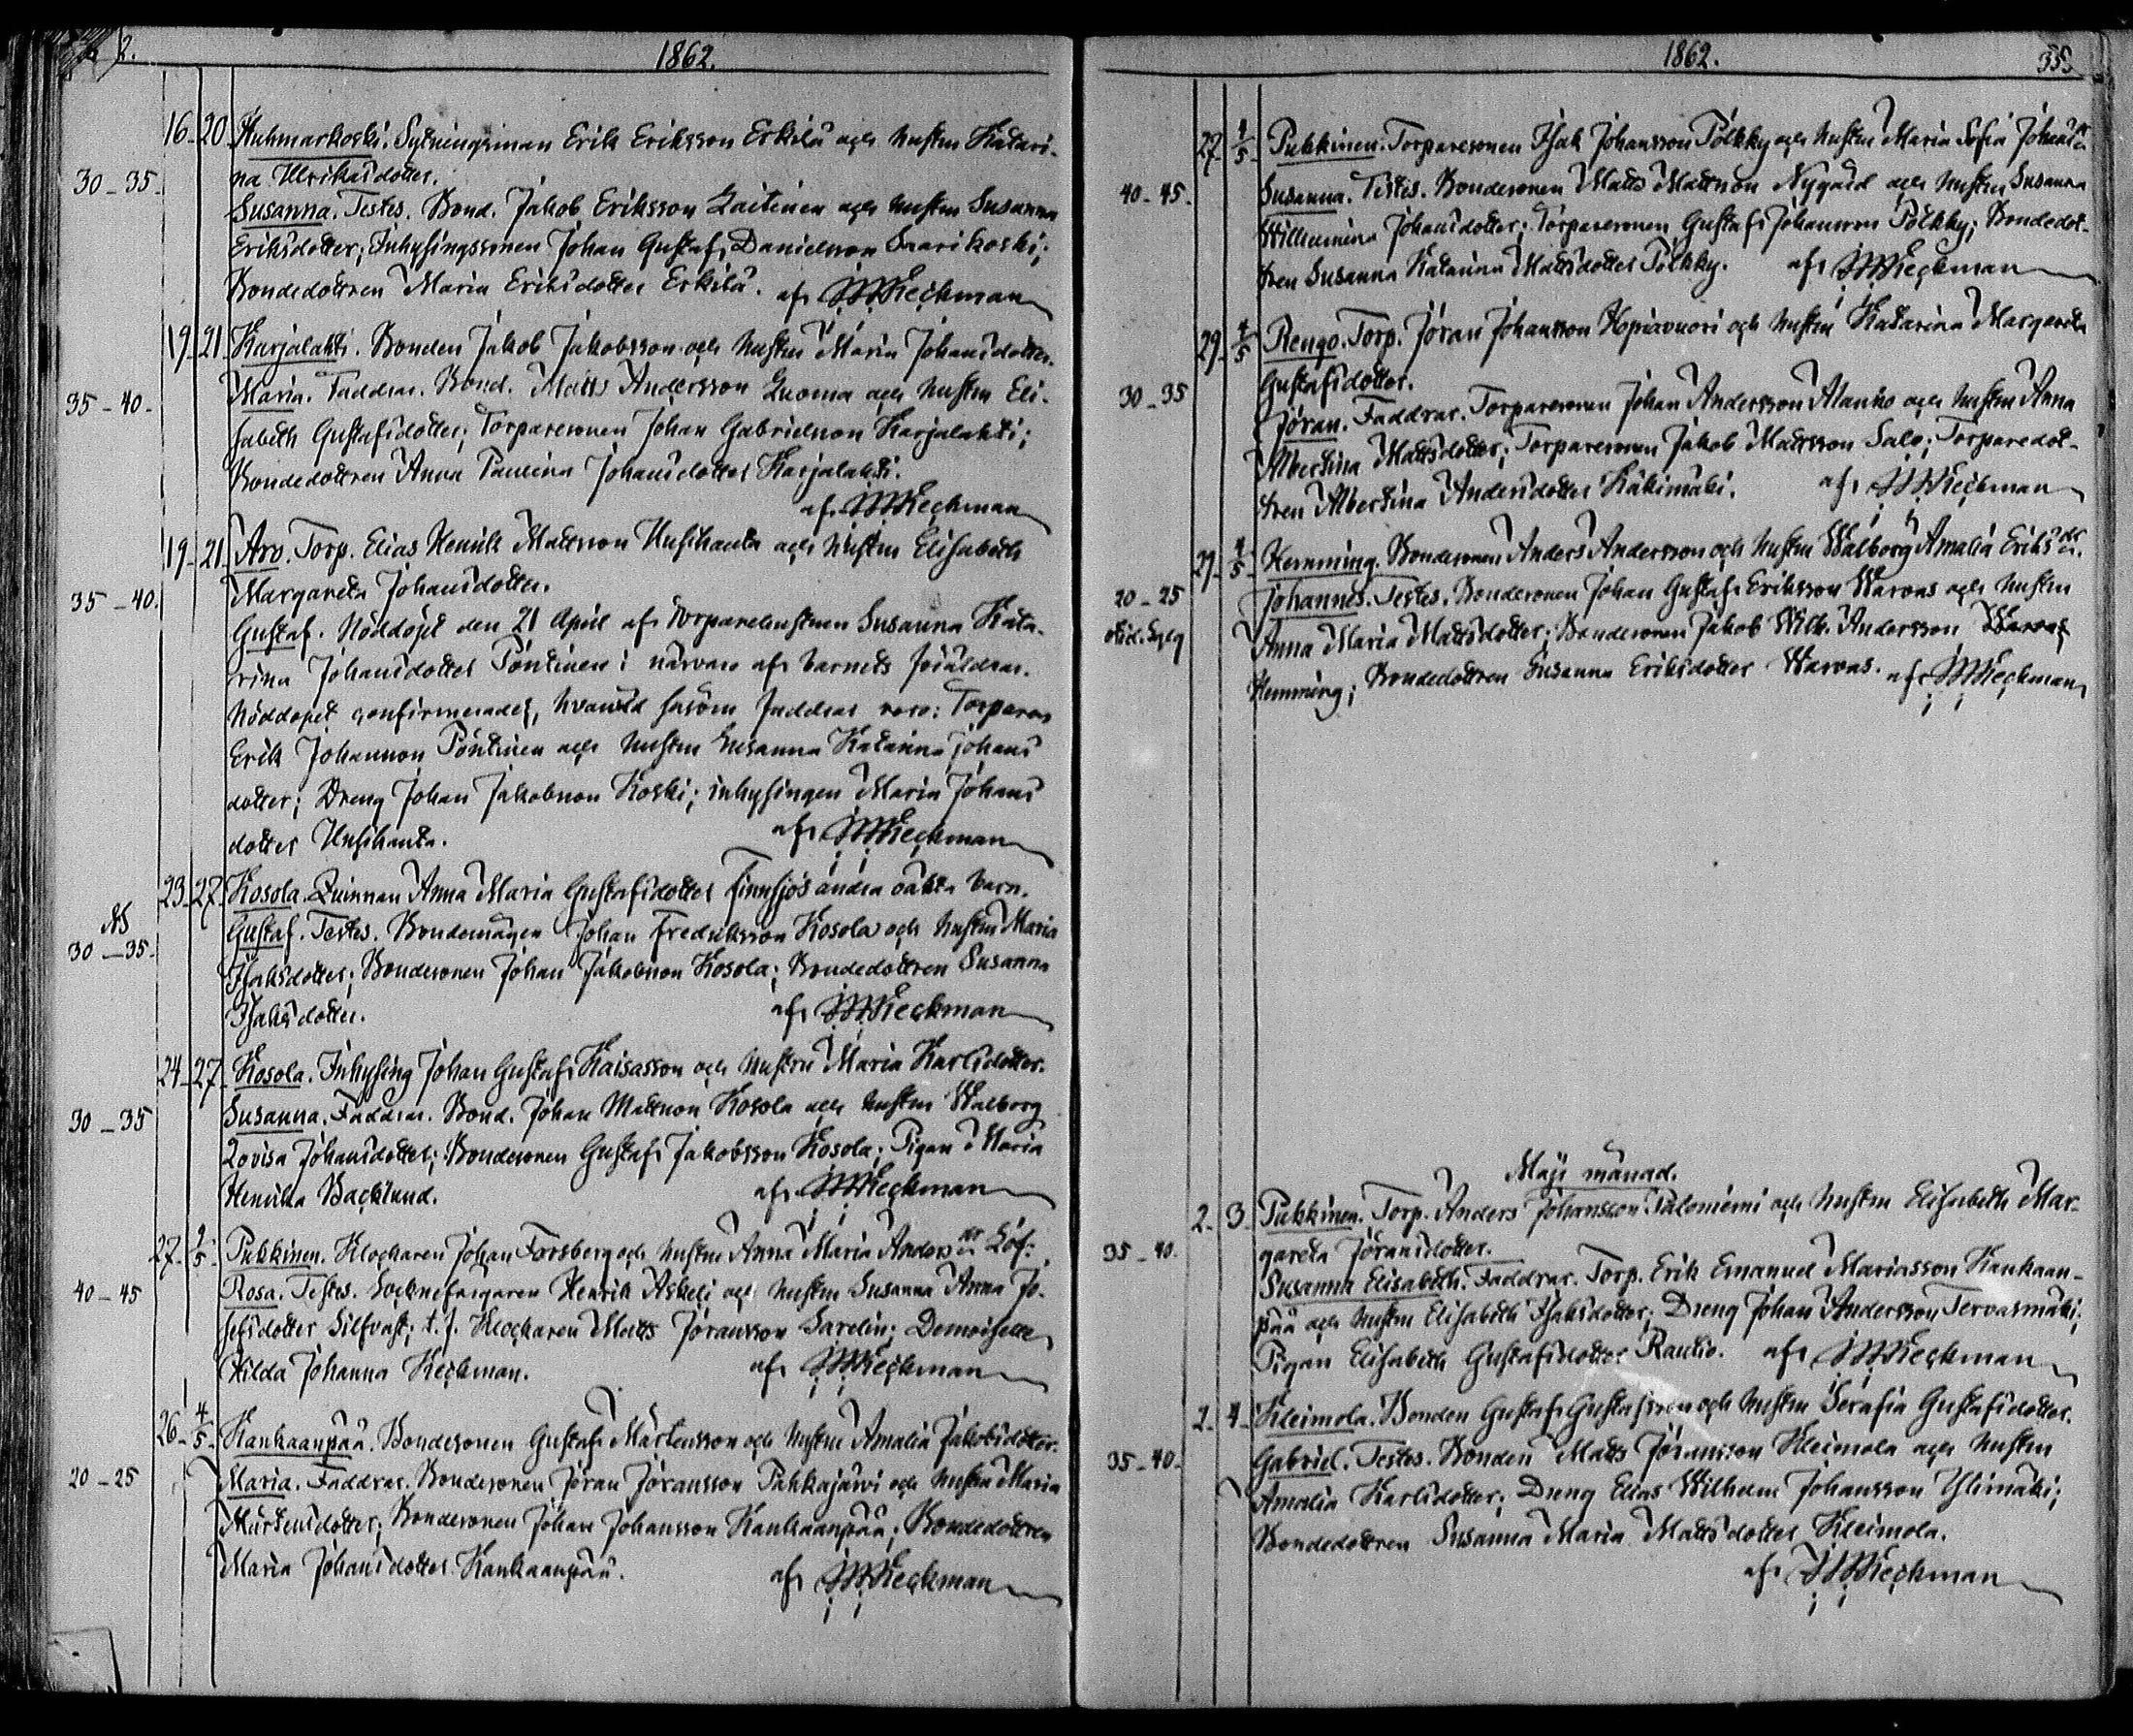 2.
1862.
16 20 Huhmarkoski. Sytningsman Erik Eriksson Erkilä och hustru Katari-
na Ulrikasdotter.
30-35.
Susanna. Testes. Bond. Jakob Eriksson Laitinen och hustru Susanna
Eriksdotter; Inhysingssonen Johan Gustaf Danielsson Saarikoski;
Bondedottren Maria Eriksdotter Erkilä. af
19 21 Karjalahti. Bonden Jakob Jakobsson och hustru Maria Johansdotter.
35-40. Maria. Faddrar. Bond. Matts Andersson Luoma och hustru Eli-
sabeth Gustafsdotter; Torparesonen Johan Gabrielsson Karjalahti;
Bondedottren Anna Paulina Johansdotter Karjalahti.
af
19 21 Aro. Torp. Elias Henrik Mattsson Uusihauta och hustru Elisabeth
35-40. Margareta Johansdotter.
Gustaf. Nöddöpt den 21 April af Torparehustrun Susanna Kata-
rina Johansdotter Pöntinen i närvaro af barnets föräldrar.
Nöddopet confirmerades, hvarvid såsom faddrar voro: Torparen
Erik Johansson Pöntinen och hustru Susanna Katarina Johans
dotter; Dreng Johan Jakobsson Koski; inhysingen Maria Johans
dotter Uusihauta. af
23 27 Kosola. Quinnan Anna Maria Gustafsdotter Finnsjös andra oäkta barn.
30-35. Gustaf. Testes. Bondemågen Johan Fredriksson Kosola och hustru Maria
Isaksdotter; Bondesonen Johan Jakobsson Kosola; Bondedottren Susanna
Isaksdotter. af
24 27 Kosola. Inhysing Johan Gustaf Kaisasson och hustru Maria Karlsdotter.
30-35 Susanna. Faddrar. Bond. Johan Mattsson Kosola och hustru Walborg
Lovisa Johansdotter; Bondesonen Gustaf Jakobsson Kosola; Pigan Maria
Henrika Backlund. af
27 Pukkinen. Klockaren Johan Forsberg och hustru Anna Maria Anders dr Löf:
40-45 Rosa. Testes. Socknefärgaren Henrik Askeli och hustru Susanna Anna Jo-
sefsdotter Silfvast; t.f. Klockaren Matts Jöransson Sarelin; Demoiselle
Hilda Johanna Keckman. af
26 4/5 Kankaanpää. Bondesonen Gustaf Mårtensson och hustru Amalia Jakobsdotter.
20-25 Maria. Faddrar. Bondesonen Jöran Jöransson Pahkajärvi och hustru Maria
Mårtensdotter; Bondesonen Johan Johansson Kankaanpää; Bondedottren
Maria Johansdotter Kankaanpää. af
1862.
27 4/5 Pukkinen. Torparesonen Isak Johansson Pölkky och hustru Maria Sofia Johansdr
40-45. Susanna. Testes. Bondesonen Matts Mattsson Nygård och hustru Susanna
Williamina Johansdotter; Torparesonen Gustaf Johansson Pölkky; Bondedot-
tren Susanna Katarina Mattsdotter Pölkky. af
29 4/5 Rengo. Torp. Jöran Johansson Kopiavuori och hustru Katarina Margareta
30-35 Gustafsdotter.
Jöran. Faddrar. Torparesonen Johan Andersson Alanko och hustru Anna
Albertina Mattsdotter; Torparesonen Jakob Mattsson Salo; Torparedot-
tren Albertina Andersdotter Käkimäki. af
29 4/5 Hemming. Bondesonen Anders Andersson och hustru Walborg Amalia Eriksdr.
20-25 Johannes. Testes. Bondesonen Johan Gustaf Eriksson Warvas och hustru
Anna Maria Mattsdotter; Bondesonen Jakob Wilh. Andersson Warvas
Hemming; Bondedottren Susanna Eriksdotter Warvas. af
Maji månad.
2. 3 Pukkinen. Torp. Anders Johansson Palomäki och hustru Elisabeth Mar-
35-40. gareta Jöransdotter.
Susanna Elisabeth. Faddrar. Torp. Erik Emanuel Mariasson Kankaan-
pää och hustru Elisabeth Isaksdotter; Dreng Johan Andersson Tervasmäki;
Pigan Elisabeth Gustafsdotter Rautio. af
2. 4 Heimola. Bonden Gustaf Gustafsson och hustru Serafia Gustafsdotter.
35-40. Gabriel. Testes. Bonden Matts Jöransson Heimola och hustru
Amalia Karlsdotter; Dreng Elias Wilhelm Johansson Ylimäki;
Bondedottren Susanna Maria Mattsdotter Heimola.
af